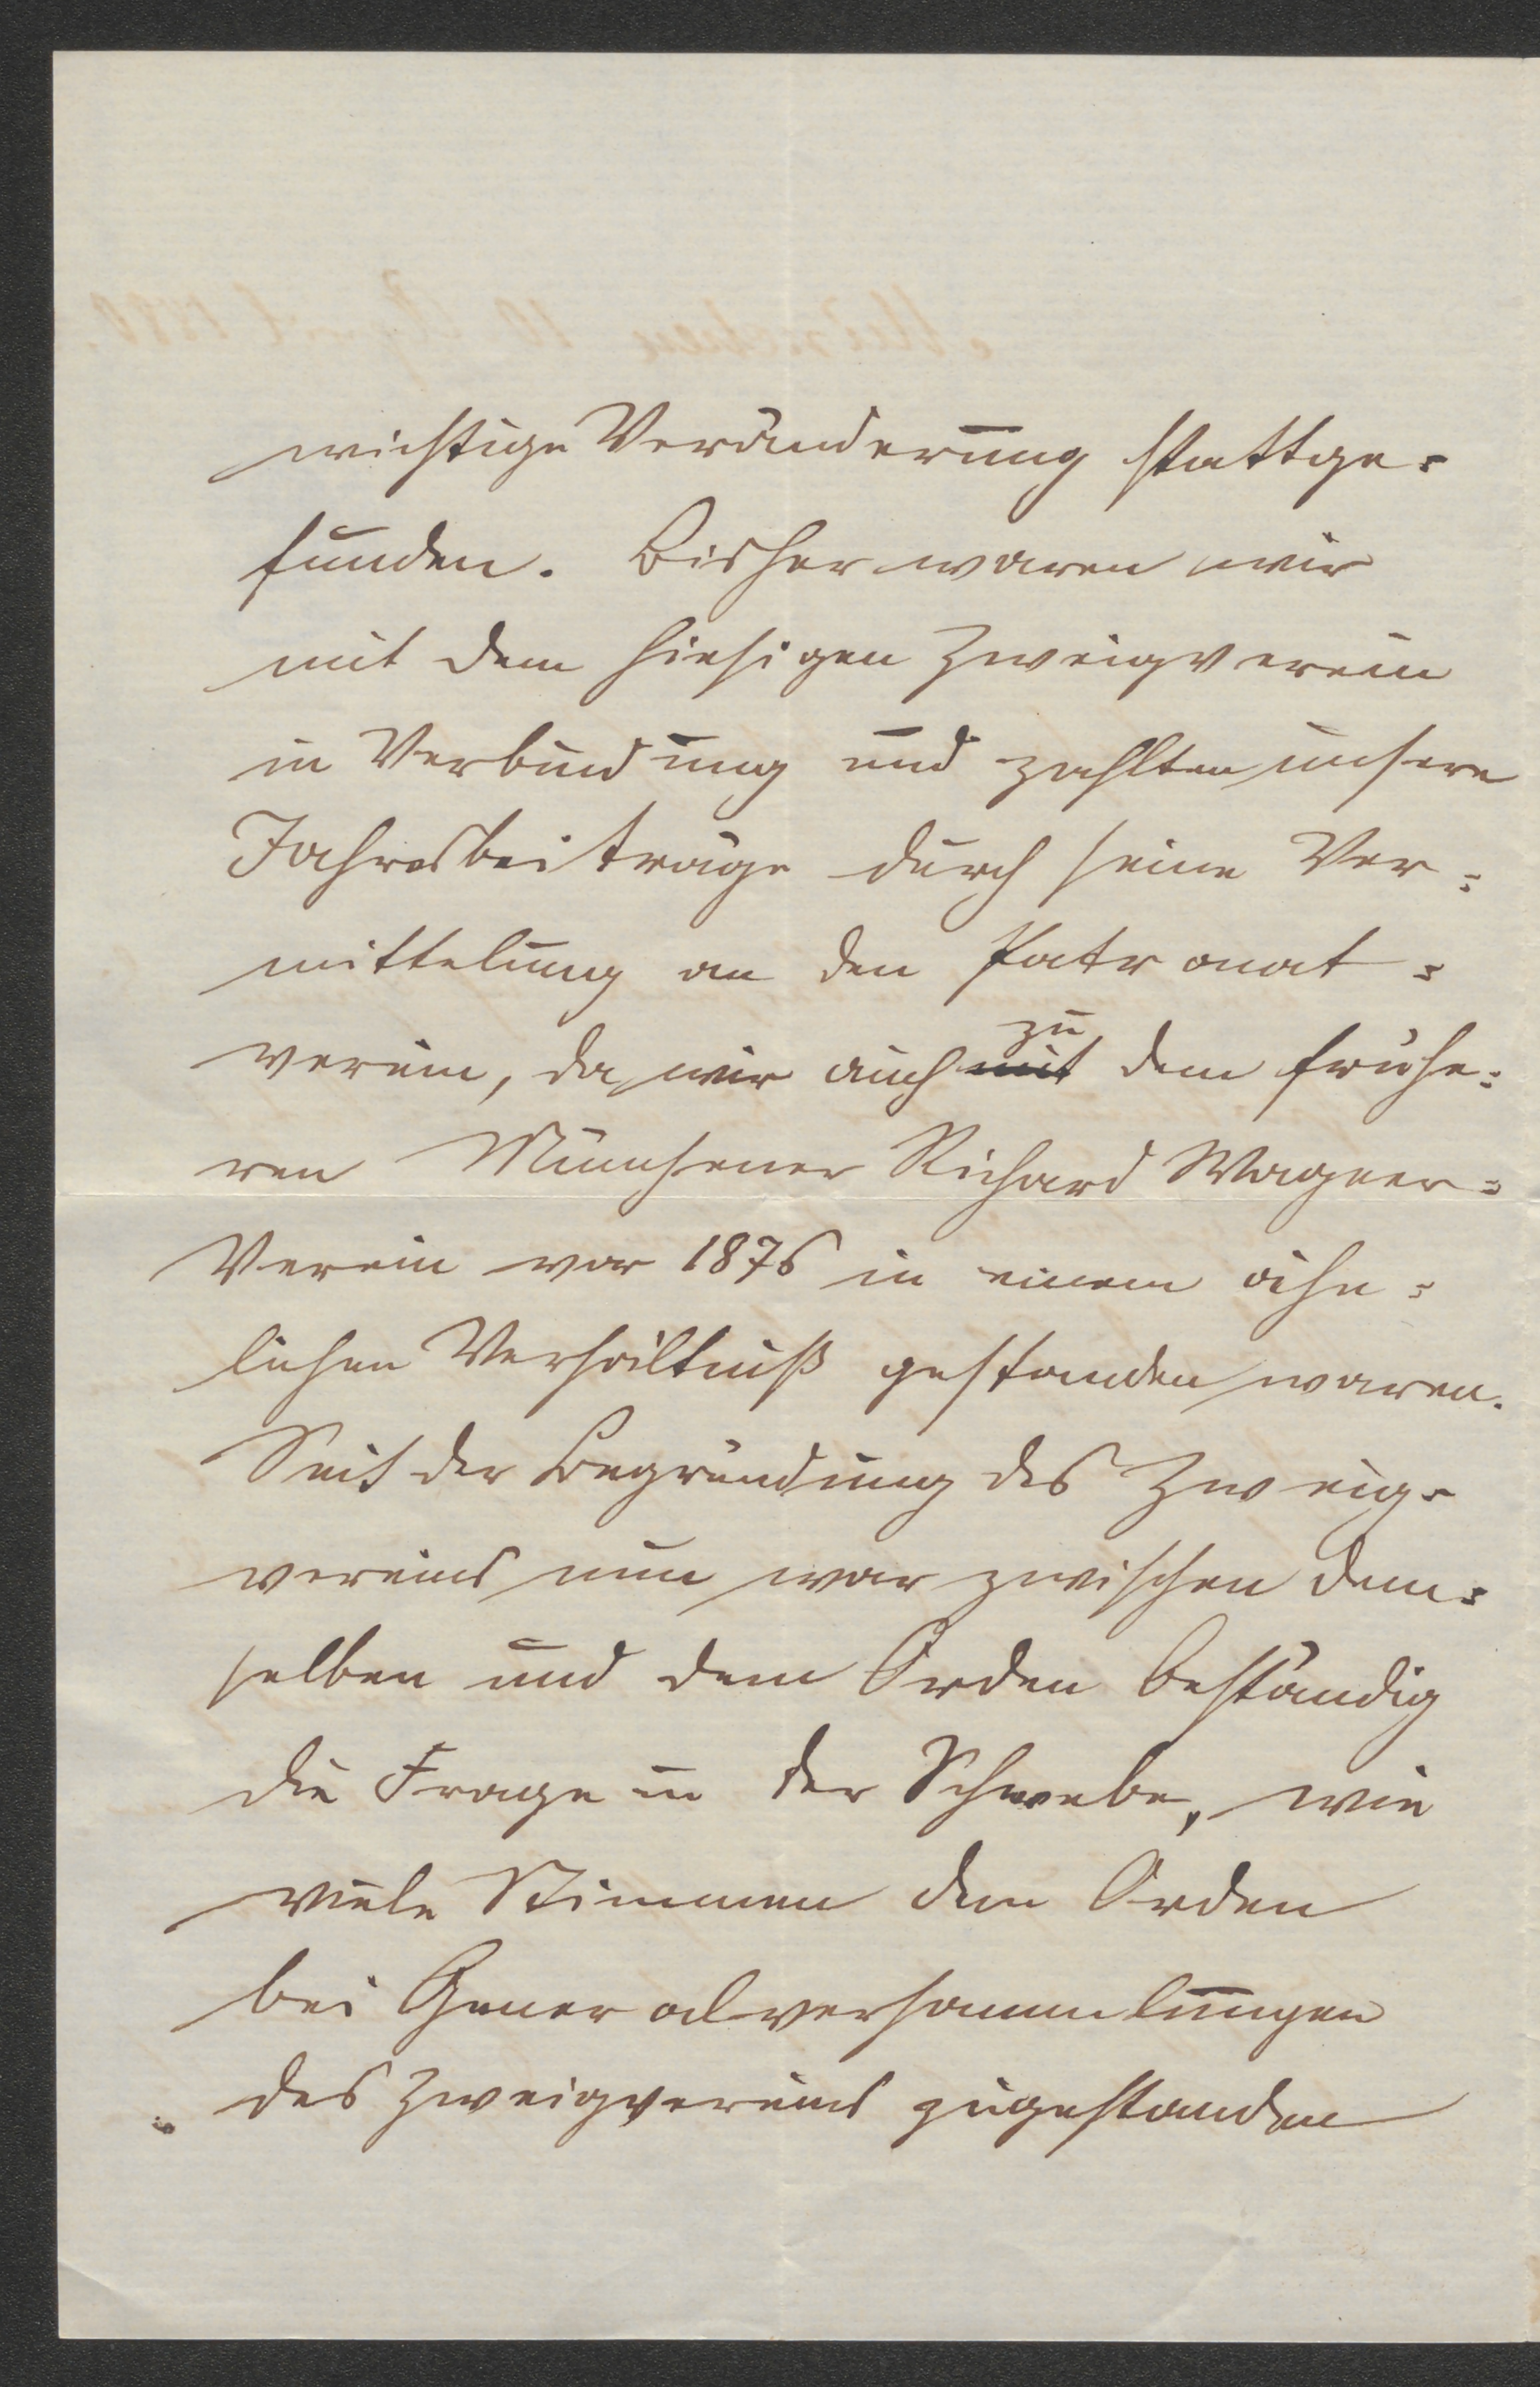 wichtige Veränderung stattge-
funden. Bisher waren wir
mit dem hiesigen Zweigverein
in Verbindung und zahlten unsere
Jahresbeiträge durch seine Ver=
mittelung an den Patronat=
zu
verein, da wir auch mit dem frühe=
ren Münchener Richard Wagner=
Verein vor 1876 in einem ähn=
lichen Verhältniß gestanden waren.
Seit der Begründung des Zweig-
vereins nun war zwischen dem=
selben und dem Orden beständig
die Frage in der Schwebe, wie
viele Stimmen dem Orden
bei Generalversammlungen
des Zweigvereins zugestanden